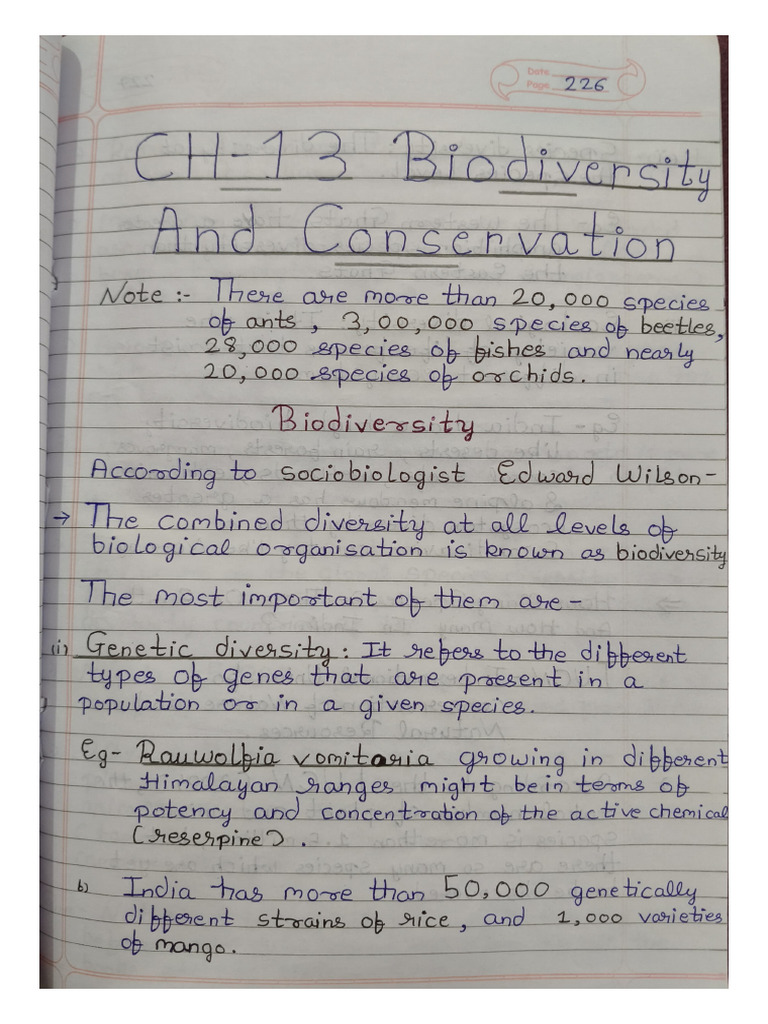 Date
Page 226
CH-13 Biodiversity
And Conservation
Note :- There are more than 20,000 species
of ants, 3,00,000 species of beetles,
28,000 species of fishes and nearly
20,000 species of orchids.
Biodiversity
According to sociobiologist Edward Wilson-
→ The combined diversity at all levels of
biological organisation is known as biodiversity
The most important of them are-
(i) Genetic diversity: It refers to the different
types of genes that are present in a
population or in a given species.
Eg- Rauwolfia vomitaria growing in different
Himalayan ranges might be in terms of
potency and concentration of the active chemical
(reserpine).
b) India has more than 50,000 genetically
different strains of rice, and 1,000 varieties
of mango.